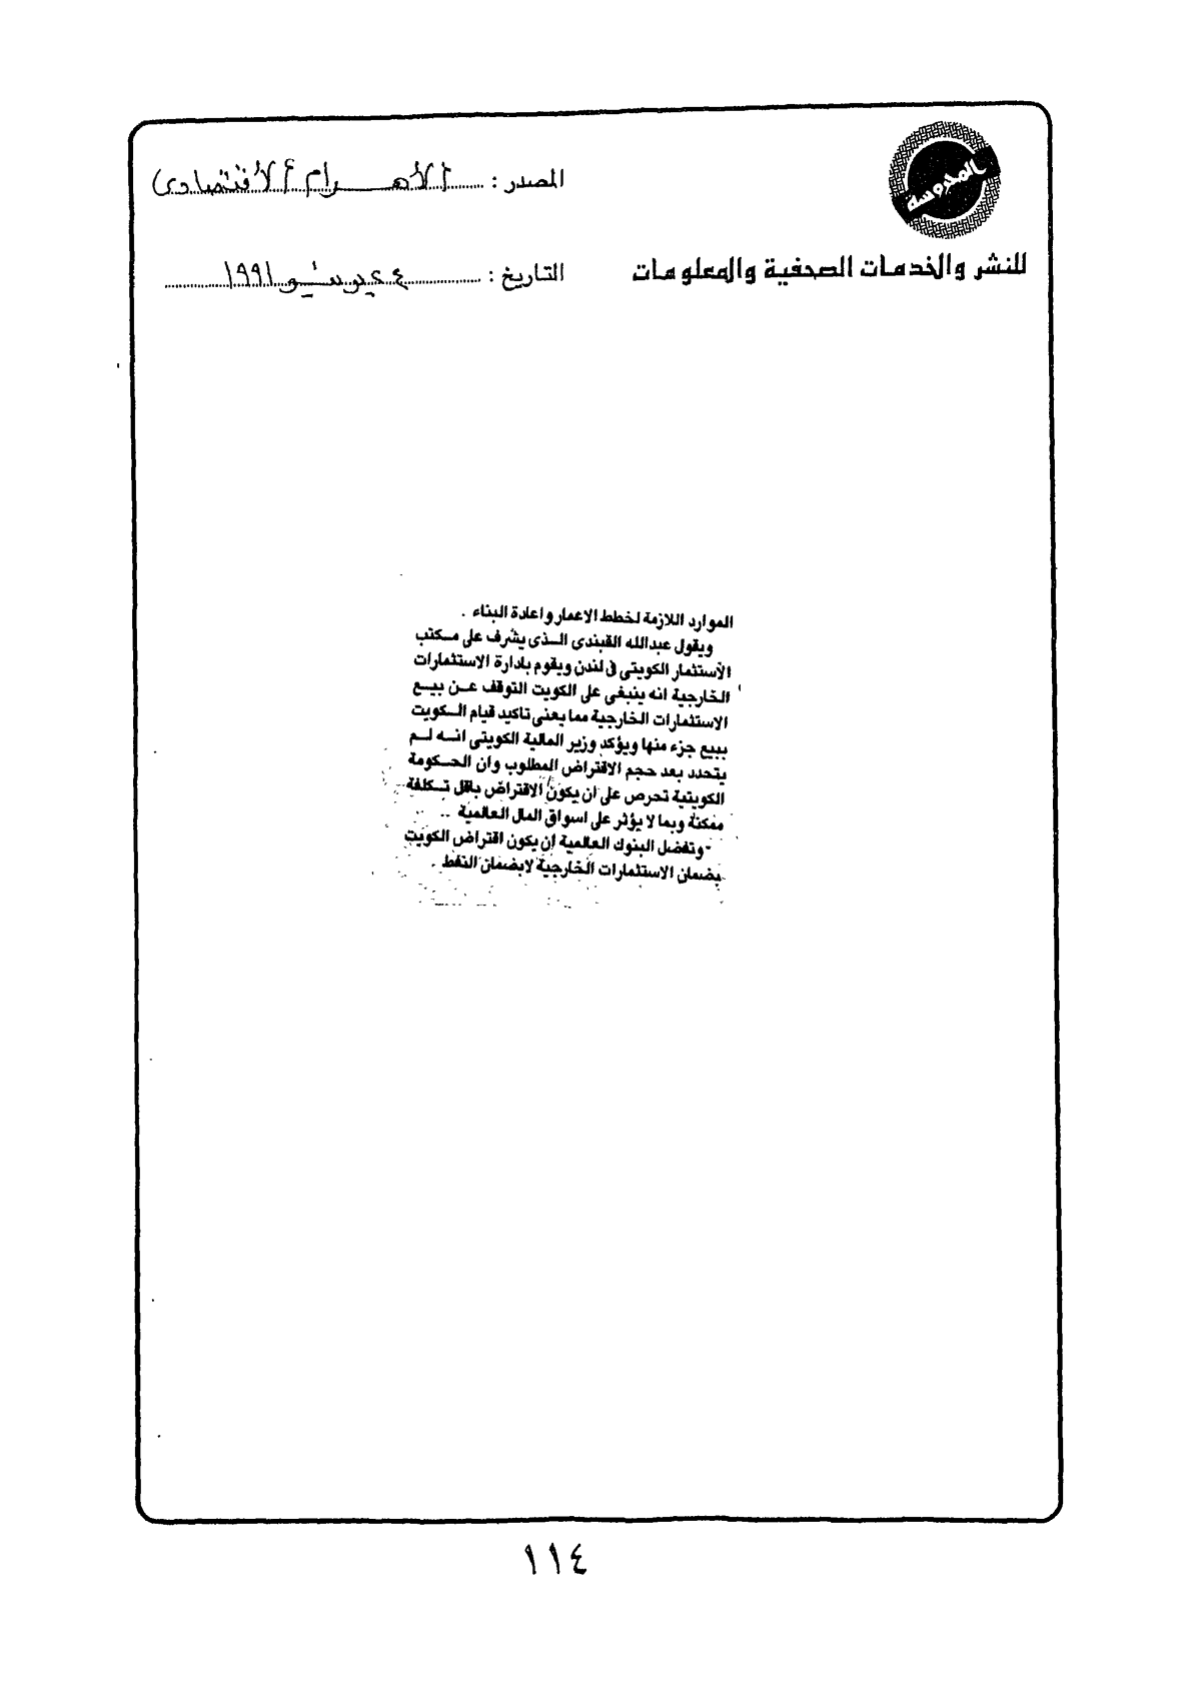 المدوسة
للنشر والخدمات الصحفية والمعلومات
المصدر : الأهرام الاقتصادى
التاريخ : ٢٤ يونيو ١٩٩١
الموارد اللازمة لخطط الاعمار واعادة البناء .
ويقول عبدالله القبندى الذى يشرف على مكتب
الأستثمار الكويتى فى لندن ويقوم بادارة الاستثمارات
الخارجية انه ينبغى على الكويت التوقف عن بيع
الاستثمارات الخارجية مما يعنى تاكيد قيام الكويت
ببيع جزء منها ويؤكد وزير المالية الكويتى انه لم
يتحدد بعد حجم الاقتراض المطلوب وان الحكومة
الكويتية تحرص على ان يكون الاقتراض باقل تكلفة
ممكنة وبما لا يؤثر على اسواق المال العالمية ..
- وتفضل البنوك العالمية ان يكون اقتراض الكويت
بضمان الاستثمارات الخارجية لابضمان النفط .
١١٤